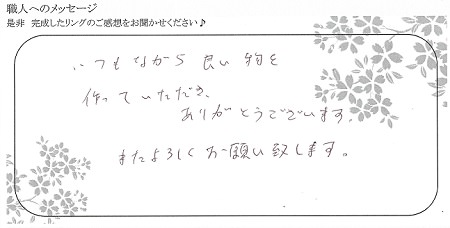 職人へのメッセージ
是非 完成したリングのご感想をお聞かせください♪
いつもながら 良い物を
作っていただき、
ありがとうございます。
またよろしくお願い致します。